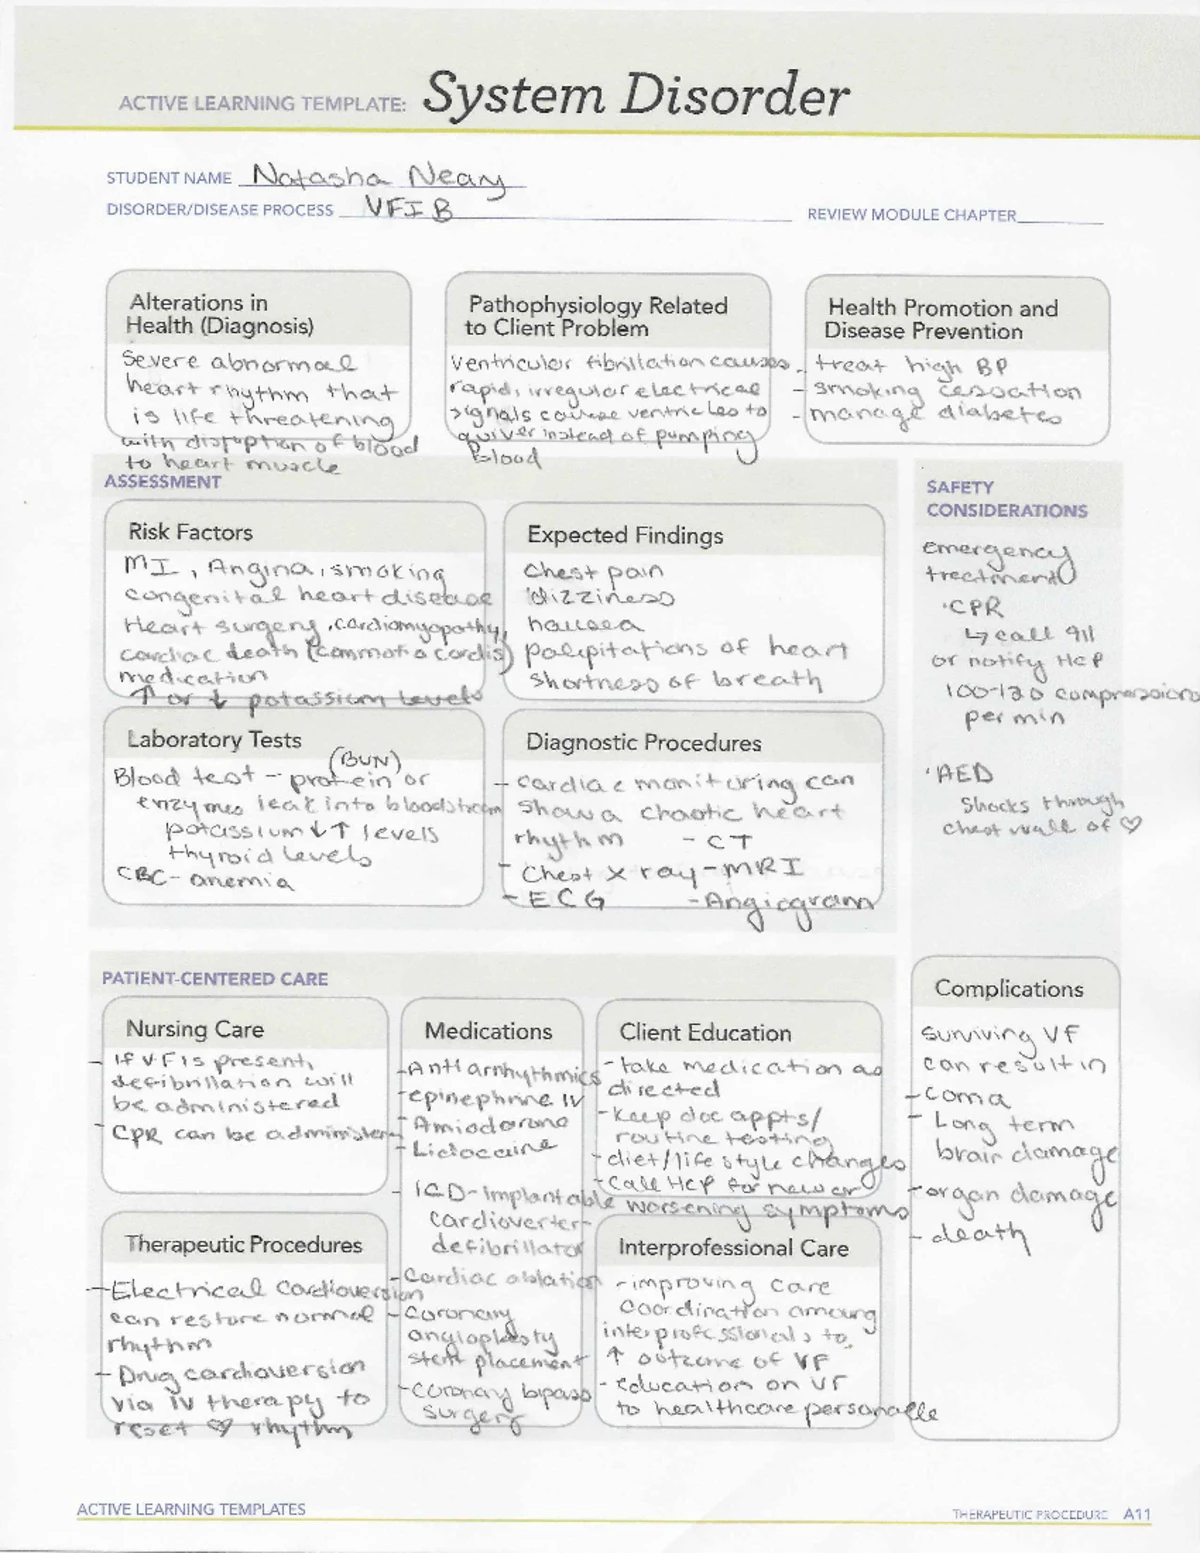 ACTIVE LEARNING TEMPLATE: System Disorder
STUDENT NAME Natasha Neary
DISORDER/DISEASE PROCESS VFIB
REVIEW MODULE CHAPTER
Alterations in
Health (Diagnosis)
Severe abnormal
heart rhythm that
is life threatening
with disruption of blood
to heart muscle
Pathophysiology Related
to Client Problem
Ventricular fibrillation causes
rapid, irregular electrical
signals cause ventricles to
quiver instead of pumping
blood
Health Promotion and
Disease Prevention
- treat high BP
- smoking cessation
- manage diabetes
ASSESSMENT
Risk Factors
MI, Angina, smoking
congenital heart disease
Heart surgery, cardiomyopathy,
cardiac death (commotio cordis)
medication
↑ or ↓ potassium levels
Expected Findings
Chest pain
dizziness
nausea
palipitations of heart
shortness of breath
SAFETY
CONSIDERATIONS
emergency
treatment
·CPR
↳ call 911
or notify HCP
100-120 compressions
per min
·AED
Shocks through
chest wall of ♡
Laboratory Tests
(BUN)
Blood test - protein or
enzymes leak into bloodstream
potassium ↓↑ levels
thyroid levels
CBC - anemia
Diagnostic Procedures
- cardiac monitoring can
show a chaotic heart
rhythm - CT
- Chest x ray - MRI
- ECG - Angiogram
PATIENT-CENTERED CARE
Nursing Care
- If VF is present,
defibrillation will
be administered
- CPR can be administer
Medications
- Antiarrhythmics
- epinephrine IV
- Amiodarone
- Lidocaine
- ICD - implantable
cardioverter-
defibrillator
- Cardiac ablation
- Coronary
angioplasty
stent placement
- Coronary bipass
surgery
Client Education
- take medication as
directed
- keep doc appts/
routine testing
- diet/life style changes
- call HCP for new or
worsening symptoms
Complications
surviving VF
can result in
- coma
- Long term
brain damage
- organ damage
- death
Therapeutic Procedures
- Electrical cardioversion
can restore normal
rhythm
- Drug cardioversion
via IV therapy to
reset ♡ rhythm
Interprofessional Care
- improving care
coordination among
interprofessionals to
↑ outcome of VF
- education on VF
to healthcare personelle
ACTIVE LEARNING TEMPLATES
THERAPEUTIC PROCEDURE A11